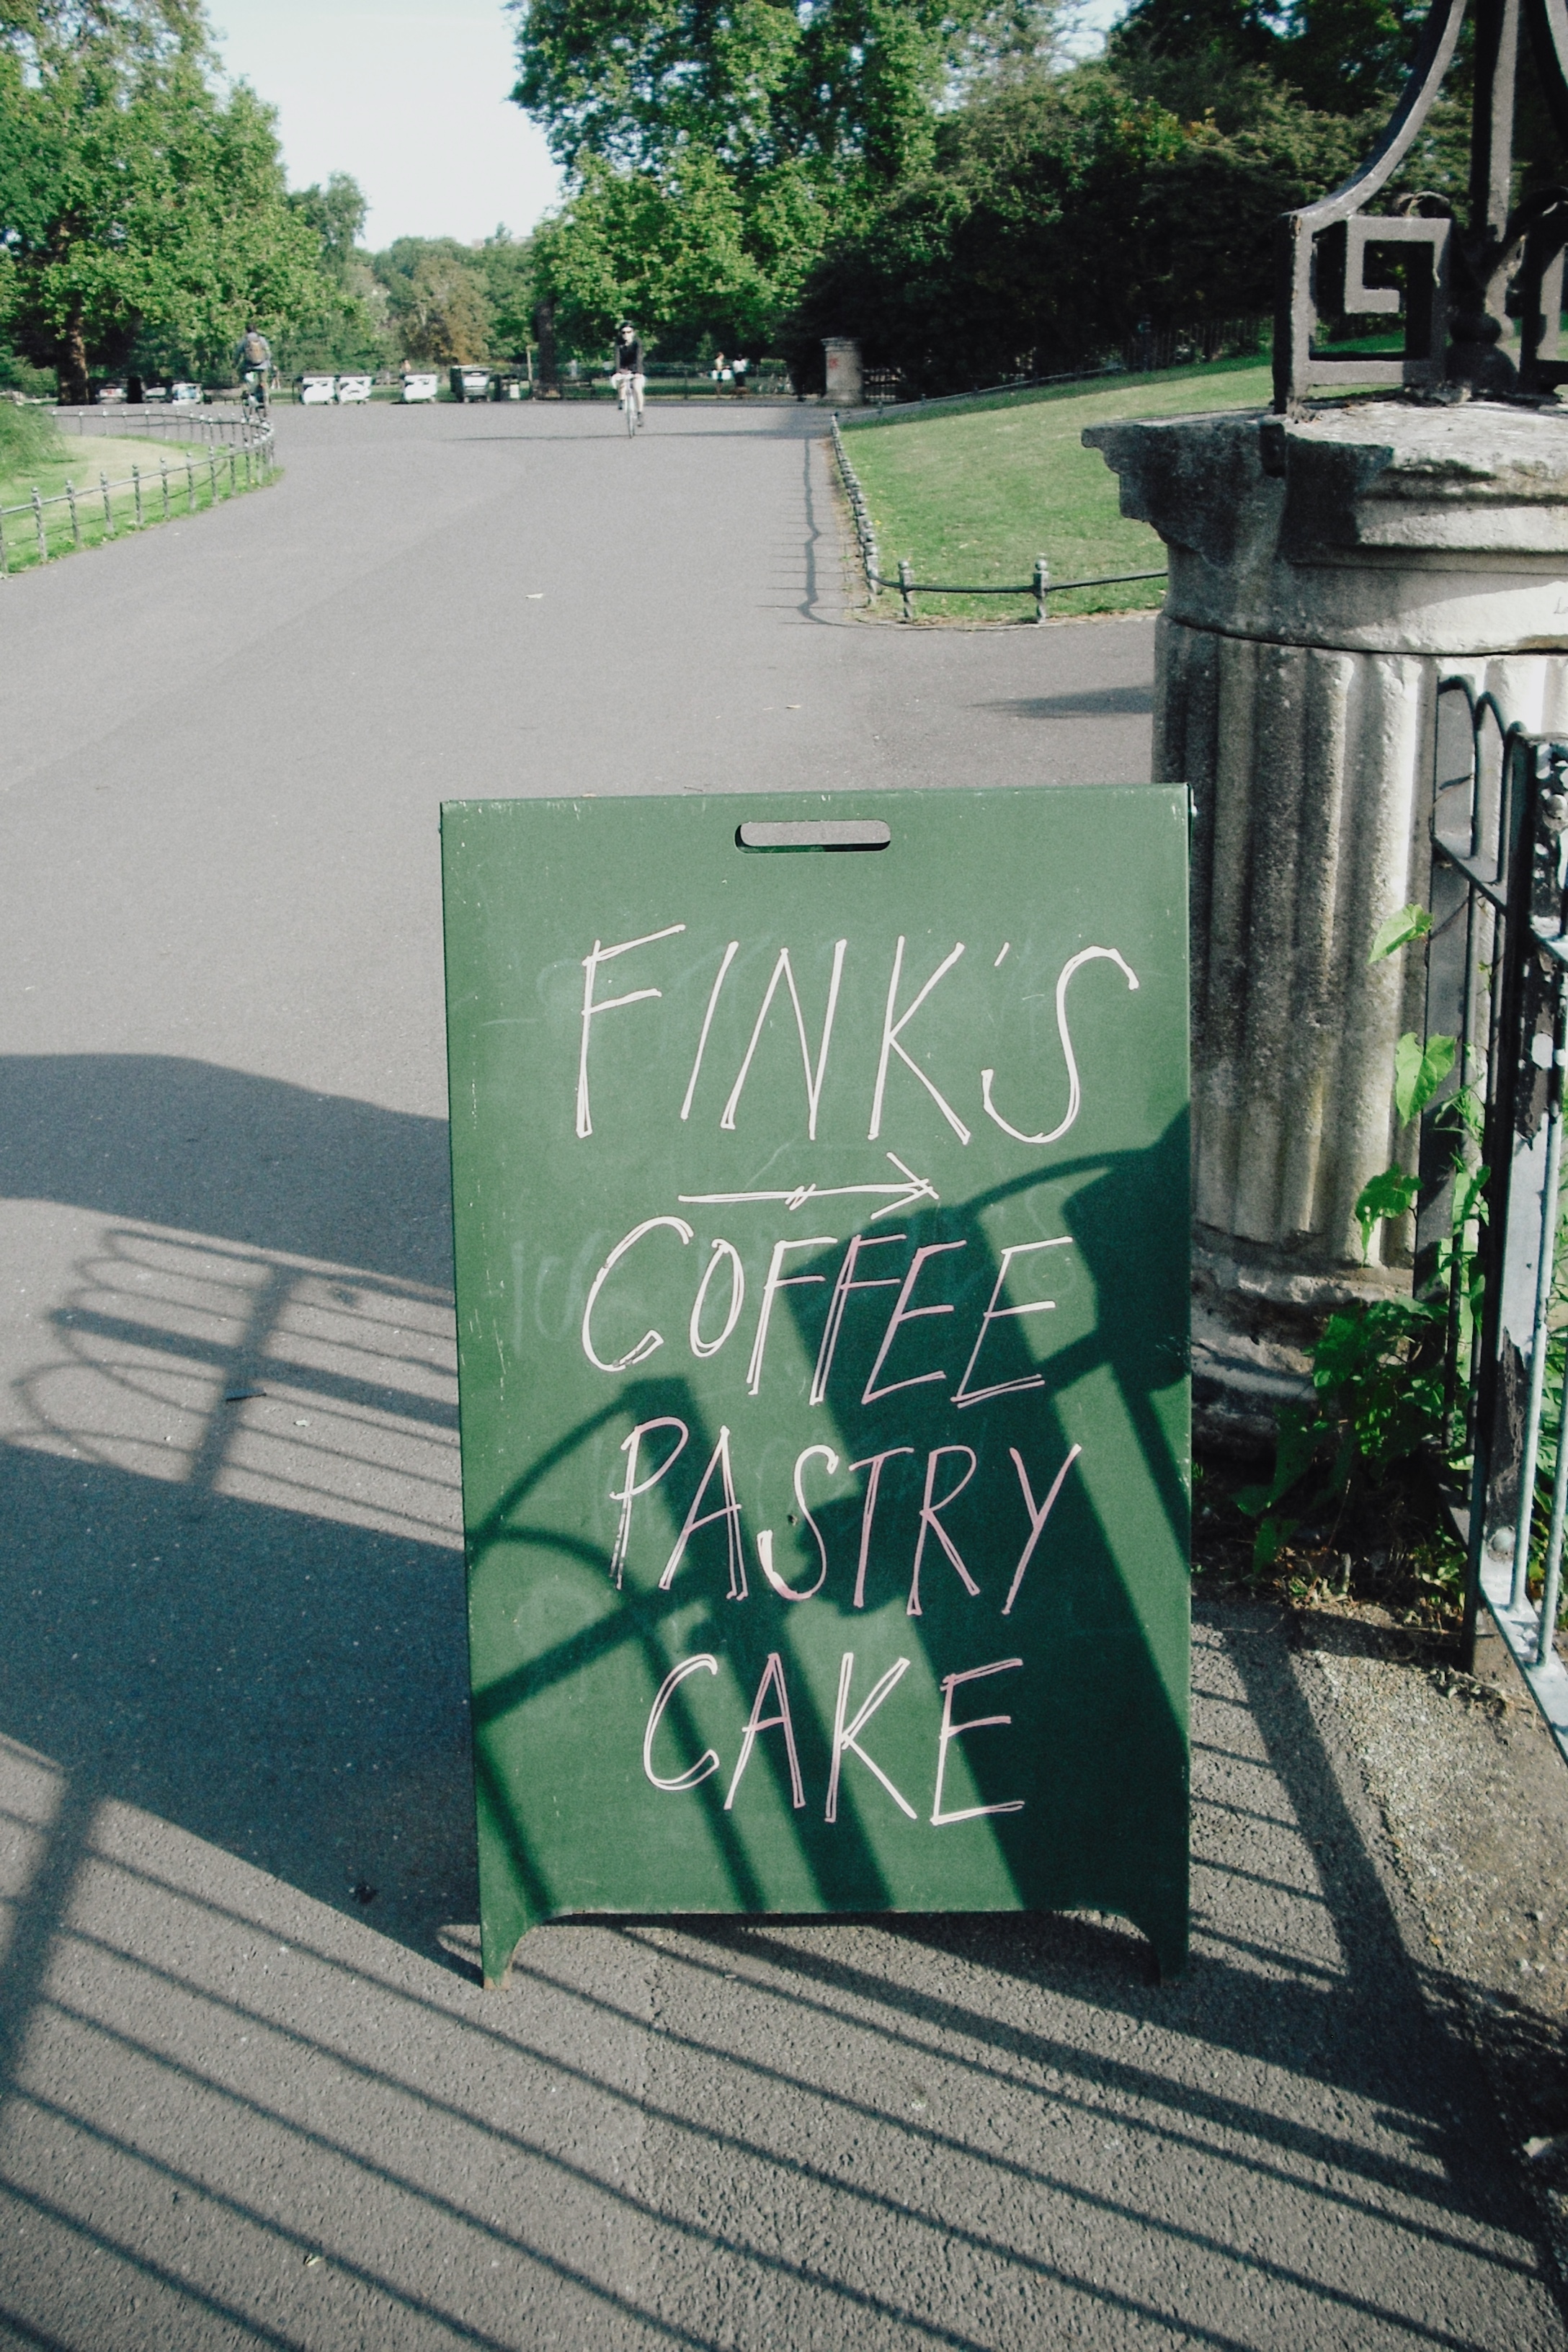 FINK'S
→
COFFEE
PASTRY
CAKE